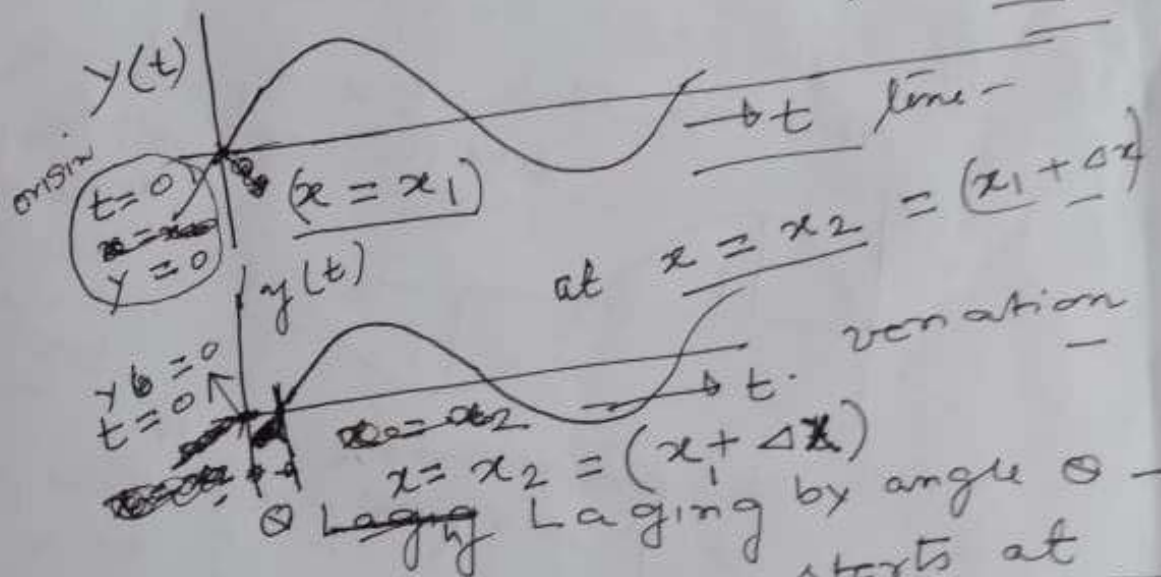 y(t)
→ t time -
origin
t = 0
y = 0
(x = x₁)
at x = x₂ = (x₁ + Δx)
y(t)
veriation -
t = 0
→ t.
x = x₂ = (x₁ + Δx)
θ Laging by angle θ -
starts at